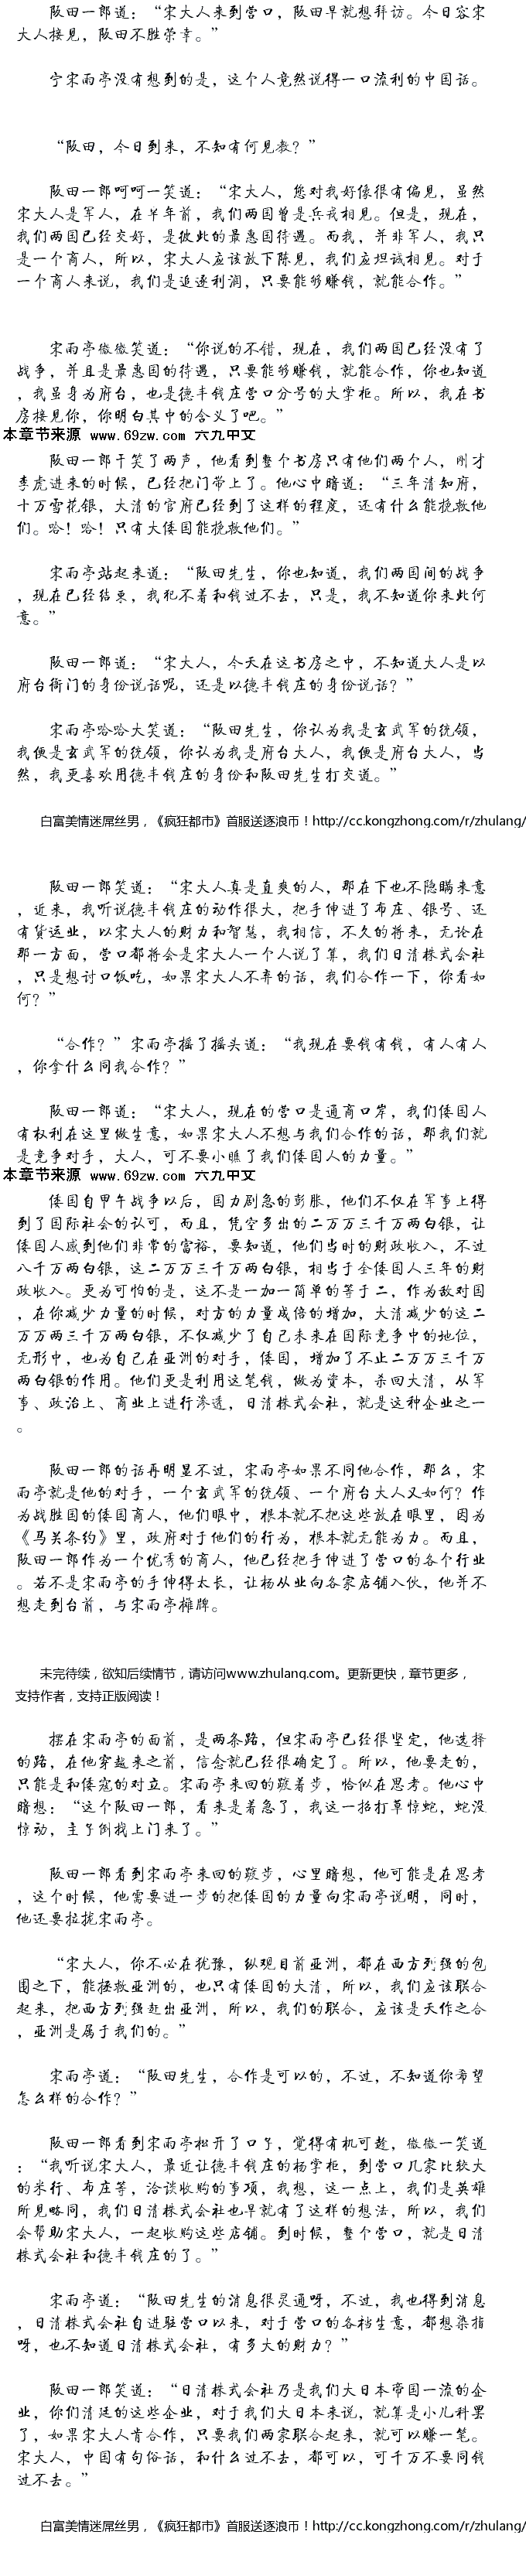 阪田一郎道：“宋大人来到营口，阪田早就想拜访。今日容宋
大人接见，阪田不胜荣幸。”
宁宋雨亭没有想到的是，这个人竟然说得一口流利的中国话。
“阪田，今日到来，不知有何见教？”
阪田一郎呵呵一笑道：“宋大人，您对我好像很有偏见，虽然
宋大人是军人，在早年前，我们两国曾是兵戎相见。但是，现在，
我们两国已经交好，是彼此的最惠国待遇。而我，并非军人，我只
是一个商人，所以，宋大人应该放下陈见，我们应坦诚相见。对于
一个商人来说，我们是追逐利润，只要能够赚钱，就能合作。”
宋雨亭微微笑道：“你说的不错，现在，我们两国已经没有了
战争，并且是最惠国的待遇，只要能够赚钱，就能合作，你也知道
，我虽身为府台，也是德丰钱庄营口分号的大掌柜。所以，我在书
房接见你，你明白其中的含义了吧。”
本章节来源 www.69zw.com 六九中文
阪田一郎干笑了两声，他看到整个书房只有他们两个人，刚才
李虎进来的时候，已经把门带上了。他心中暗道：“三年清知府，
十万雪花银，大清的官府已经到了这样的程度，还有什么能挽救他
们。哈！哈！只有大倭国能挽救他们。”
宋雨亭站起来道：“阪田先生，你也知道，我们两国间的战争
，现在已经结束，我犯不着和钱过不去，只是，我不知道你来此何
意。”
阪田一郎道：“宋大人，今天在这书房之中，不知道大人是以
府台衙门的身份说话呢，还是以德丰钱庄的身份说话？”
宋雨亭哈哈大笑道：“阪田先生，你认为我是玄武军的统领，
我便是玄武军的统领，你认为我是府台大人，我便是府台大人，当
然，我更喜欢用德丰钱庄的身份和阪田先生打交道。”
白富美情迷屌丝男，《疯狂都市》首服送逐浪币！http://cc.kongzhong.com/r/zhulang/
阪田一郎笑道：“宋大人真是直爽的人，那在下也不隐瞒来意
，近来，我听说德丰钱庄的动作很大，把手伸进了布庄、银号、还
有货运业，以宋大人的财力和智慧，我相信，不久的将来，无论在
那一方面，营口都将会是宋大人一个人说了算，我们日清株式会社
，只是想讨口饭吃，如果宋大人不弃的话，我们合作一下，你看如
何？”
“合作？”宋雨亭摇了摇头道：“我现在要钱有钱，有人有人
，你拿什么同我合作？”
阪田一郎道：“宋大人，现在的营口是通商口岸，我们倭国人
有权利在这里做生意，如果宋大人不想与我们合作的话，那我们就
是竞争对手，大人，可不要小瞧了我们倭国人的力量。”
本章节来源 www.69zw.com 六九中文
倭国自甲午战争以后，国力剧急的彭胀，他们不仅在军事上得
到了国际社会的认可，而且，凭空多出的二万万三千万两白银，让
倭国人感到他们非常的富裕，要知道，他们当时的财政收入，不过
八千万两白银，这二万万三千万两白银，相当于全倭国人三年的财
政收入。更为可怕的是，这不是一加一简单的等于二，作为敌对国
，在你减少力量的时候，对方的力量成倍的增加，大清减少的这二
万万两三千万两白银，不仅减少了自己未来在国际竞争中的地位，
无形中，也为自己在亚洲的对手，倭国，增加了不止二万万三千万
两白银的作用。他们更是利用这笔钱，做为资本，杀回大清，从军
事、政治上、商业上进行渗透，日清株式会社，就是这种企业之一
。
阪田一郎的话再明显不过，宋雨亭如果不同他合作，那么，宋
雨亭就是他的对手，一个玄武军的统领、一个府台大人又如何？作
为战胜国的倭国商人，他们眼中，根本就不把这些放在眼里，因为
《马关条约》里，政府对于他们的行为，根本就无能为力。而且，
阪田一郎作为一个优秀的商人，他已经把手伸进了营口的各个行业
。若不是宋雨亭的手伸得太长，让杨从业向各家店铺入伙，他并不
想走到台前，与宋雨亭摊牌。
未完待续，欲知后续情节，请访问www.zhulang.com。更新更快，章节更多，
支持作者，支持正版阅读！
摆在宋雨亭的面前，是两条路，但宋雨亭已经很坚定，他选择
的路，在他穿越来之前，信念就已经很确定了。所以，他要走的，
只能是和倭寇的对立。宋雨亭来回的跺着步，恰似在思考。他心中
暗想：“这个阪田一郎，看来是着急了，我这一招打草惊蛇，蛇没
惊动，主子倒找上门来了。”
阪田一郎看到宋雨亭来回的跺步，心里暗想，他可能是在思考
，这个时候，他需要进一步的把倭国的力量向宋雨亭说明，同时，
他还要拉拢宋雨亭。
“宋大人，你不必在犹豫，纵观目前亚洲，都在西方列强的包
围之下，能拯救亚洲的，也只有倭国的大清，所以，我们应该联合
起来，把西方列强赶出亚洲，所以，我们的联合，应该是天作之合
，亚洲是属于我们的。”
宋雨亭道：“阪田先生，合作是可以的，不过，不知道你希望
怎么样的合作？”
阪田一郎看到宋雨亭松开了口子，觉得有机可趁，微微一笑道
：“我听说宋大人，最近让德丰钱庄的杨掌柜，到营口几家比较大
的米行、布庄等，洽谈收购的事项，我想，这一点上，我们是英雄
所见略同，我们日清株式会社也早就有了这样的想法，所以，我们
会帮助宋大人，一起收购这些店铺。到时候，整个营口，就是日清
株式会社和德丰钱庄的了。”
宋雨亭道：“阪田先生的消息很灵通呀，不过，我也得到消息
，日清株式会社自进驻营口以来，对于营口的各档生意，都想染指
呀，也不知道日清株式会社，有多大的财力？”
阪田一郎笑道：“日清株式会社乃是我们大日本帝国一流的企
业，你们清廷的这些企业，对于我们大日本来说，就算是小儿科罢
了，如果宋大人肯合作，只要我们两家联合起来，就可以赚一笔。
宋大人，中国有句俗话，和什么过不去，都可以，可千万不要同钱
过不去。”
白富美情迷屌丝男，《疯狂都市》首服送逐浪币！http://cc.kongzhong.com/r/zhulang/